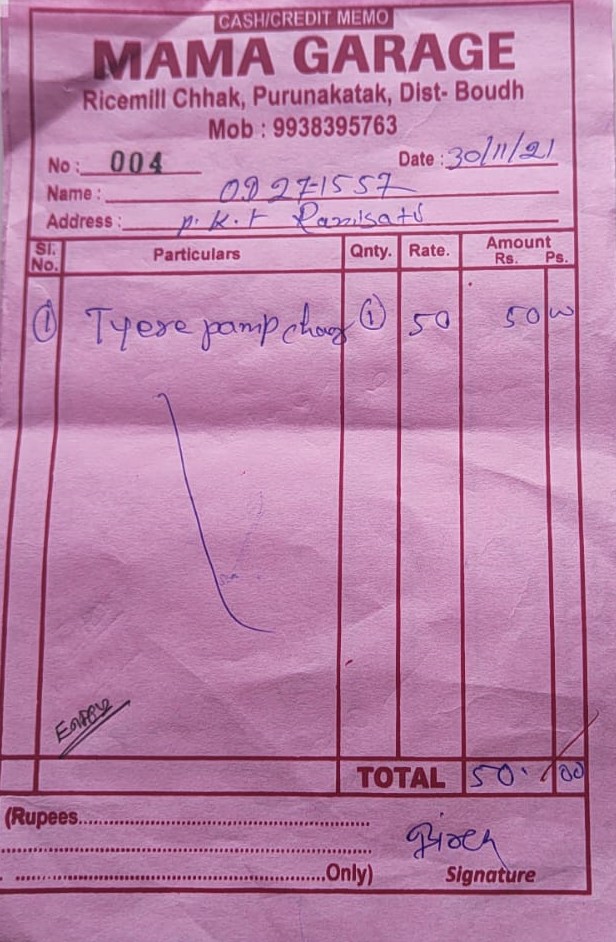 CASH/CREDIT MEMO
MAMA GARAGE
Ricemill Chhak, Purunakatak, Dist- Boudh
Mob : 9938395763
No : 004 Date : 30/11/21
Name :
Address : P.K.T
Sl. No. Particulars Qnty. Rate. Amount Rs. Ps.
① Tyere pamp ① 50 50 00
TOTAL 50.00
(Rupees
Only) Signature